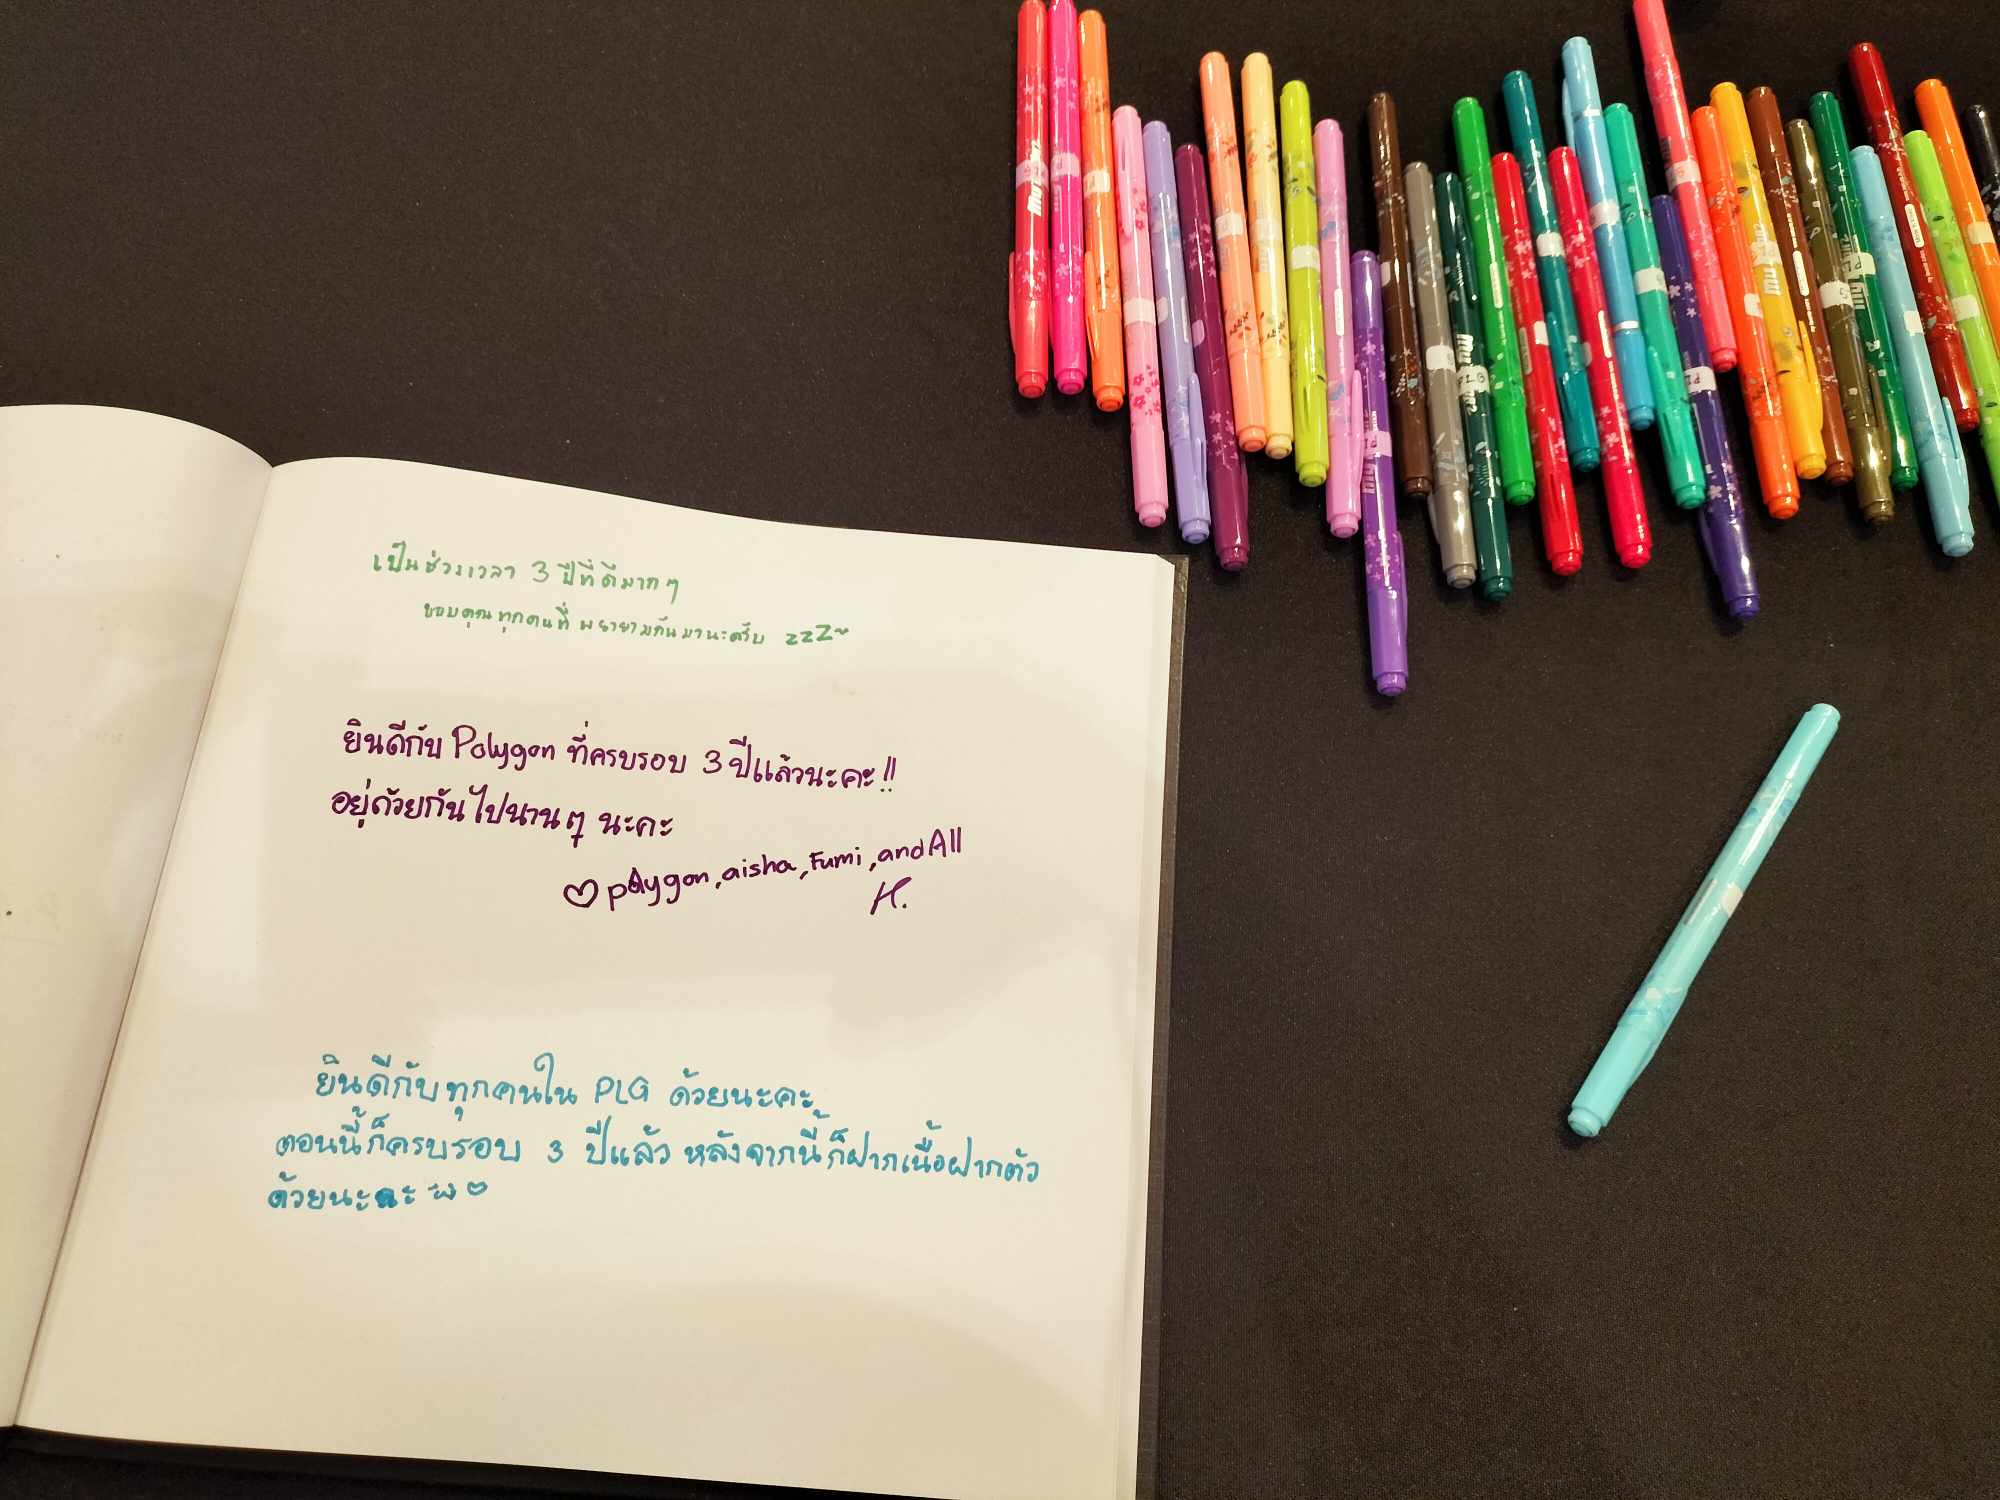 เป็นช่วงเวลา 3 ปีที่ดีมากๆ
ขอบคุณทุกคนที่พยายามกันมานะครับ zzZ~
ยินดีกับ Polygon ที่ครบรอบ 3 ปีแล้วนะคะ!!
อยู่ด้วยกันไปนานๆ นะคะ
♡ polygon, aisha, Fumi, and All
K.
ยินดีกับทุกคนใน PLG ด้วยนะคะ
ตอนนี้ก็ครบรอบ 3 ปีแล้ว หลังจากนี้ก็ฝากเนื้อฝากตัว
ด้วยนะคะ ♡